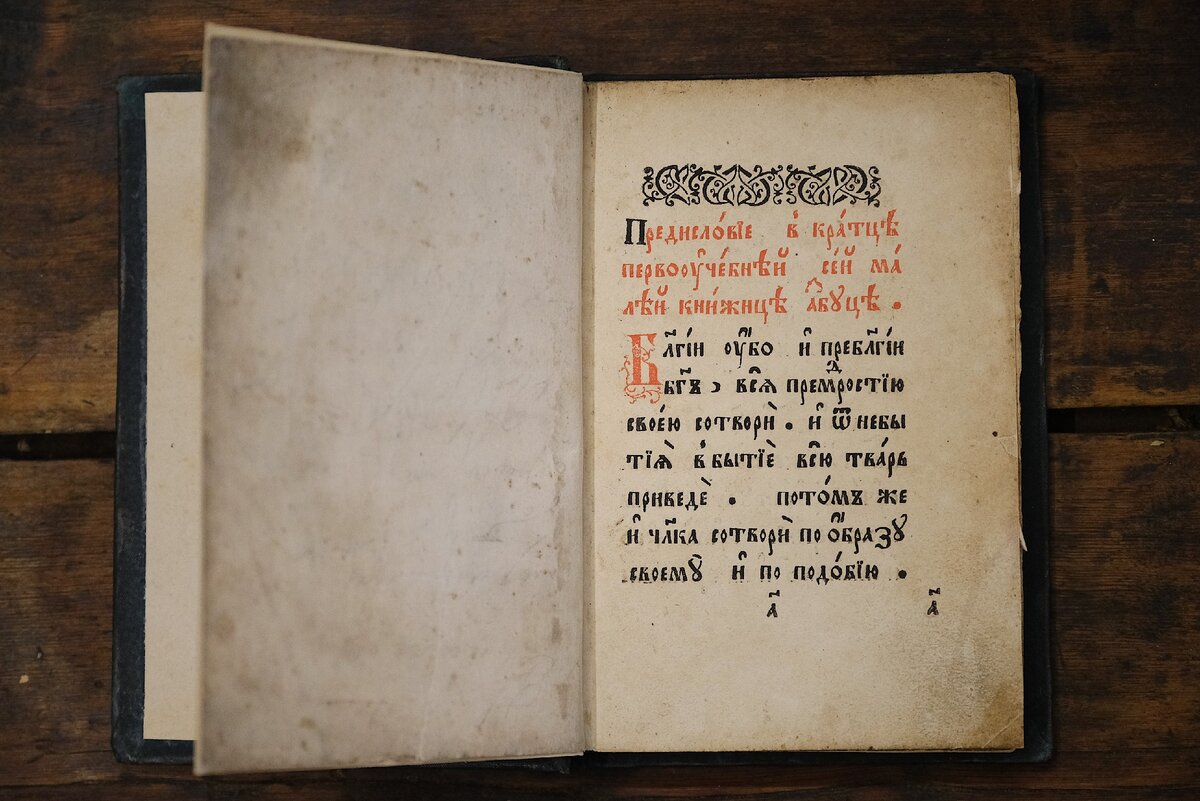 Предисло́вїе в̾ кра́тцѣ
первоᲂу҆че́бнѣй се́й ма́
лѣй кни́жицѣ а҆̑буцѣ .
Бл҃гі́й ᲂу҆́бо и҆ пребл҃гі́й
бг҃ъ , все́ѧ премⷣростїю
свое́ю сотворѝ . и҆ ѿ небы
тїѧ̀ в̾ бытїѐ всю̀ тва́рь
приведѐ . пото́мъ же
и҆ чл҃ка сотворѝ по ѻ҆́бразꙋ
своемꙋ̀ и҆ по подо́бїю .
а҃ а҃